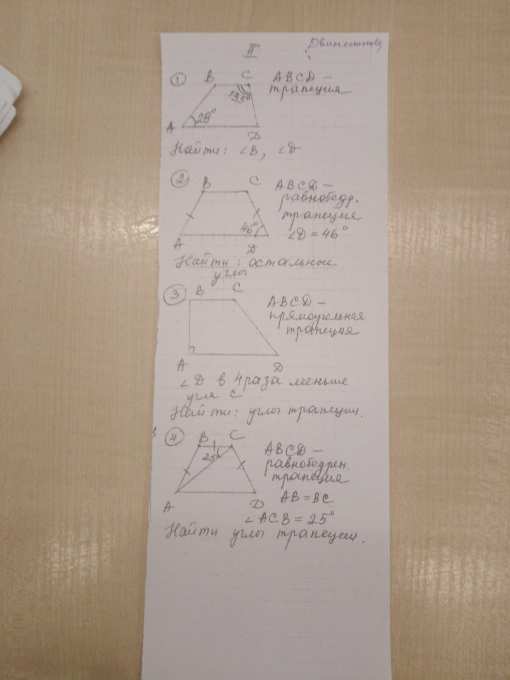 II
① B C ABCD —
трапеция
135°
28°
A D
Найти: ∠B, ∠D
② B C ABCD —
равнобедр.
трапеция
46° ∠D = 46°
A D
Найти: остальные
углы
③ B C ABCD —
прямоугольная
трапеция
A D
∠D в 4 раза меньше
угла C
Найти: углы трапеции.
④ B C ABCD —
равнобедрен.
25° трапеция
AB = BC
A D
∠ACB = 25°
Найти углы трапеции.